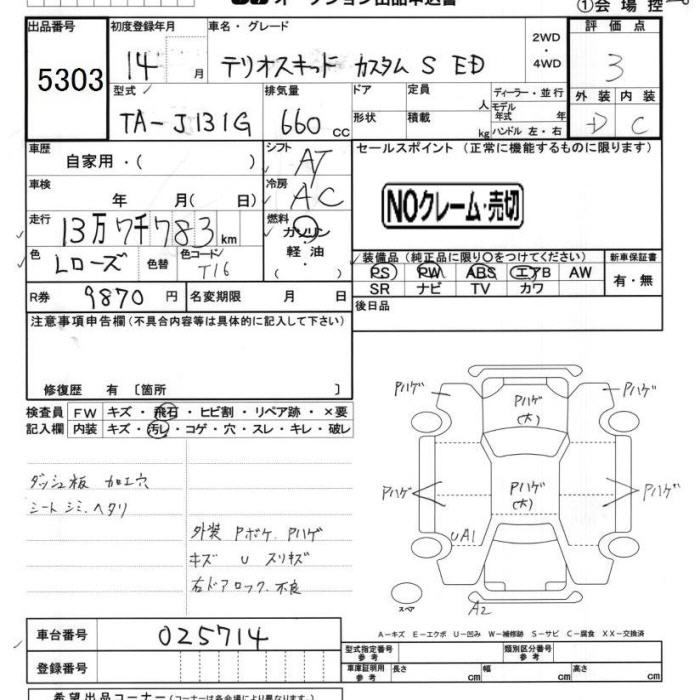 オークション出品申込書
①会場控
出品番号 初度登録年月 車名・グレード 評価点
5303 14 月 テリオスキッド カスタム S ED 2WD・4WD 3
型式 排気量 ドア 定員 人 ディーラー・並行 外装 内装
モデル年式 年
TA-J131G 660 cc 形状 積載 kg ハンドル 左・右 D C
車歴 自家用・( ) シフト AT セールスポイント (正常に機能するものに限ります)
車検 年 月( 日) 冷房 AC
NOクレーム・売切
走行 13万7千783 km 燃料 ガソリン 軽油
色 Lローズ 色替 色コード T16 装備品(純正品に限り○をつけてください) 新車保証書
PS PW ABS エアB AW 有・無
SR ナビ TV カワ
R券 9870 円 名変期限 月 日 後日品
注意事項申告欄(不具合内容等は具体的に記入して下さい)
修復歴 有 〔箇所 〕
検査員 FW キズ・飛石・ヒビ割・リペア跡・×要
記入欄 内装 キズ・汚レ・コゲ・穴・スレ・キレ・破レ
ダッシュ板 加工穴
シート シミ.ヘタリ
外装 Pボケ. Pハゲ
キズ U スリキズ
右ドアロック.不良
Pハゲ Pハゲ(大) Pハゲ
Pハゲ Pハゲ(大) Pハゲ
UA1
スペア A2
A-キズ E-エクボ U-凹み W-補修跡 S-サビ C-腐食 XX-交換済
車台番号 025714 型式指定番号 参考 類別区分番号 参考
登録番号 車庫証明用 参考 長さ cm 幅 cm 高さ cm
希望出品コーナー(コーナーは各会場により異なります。)